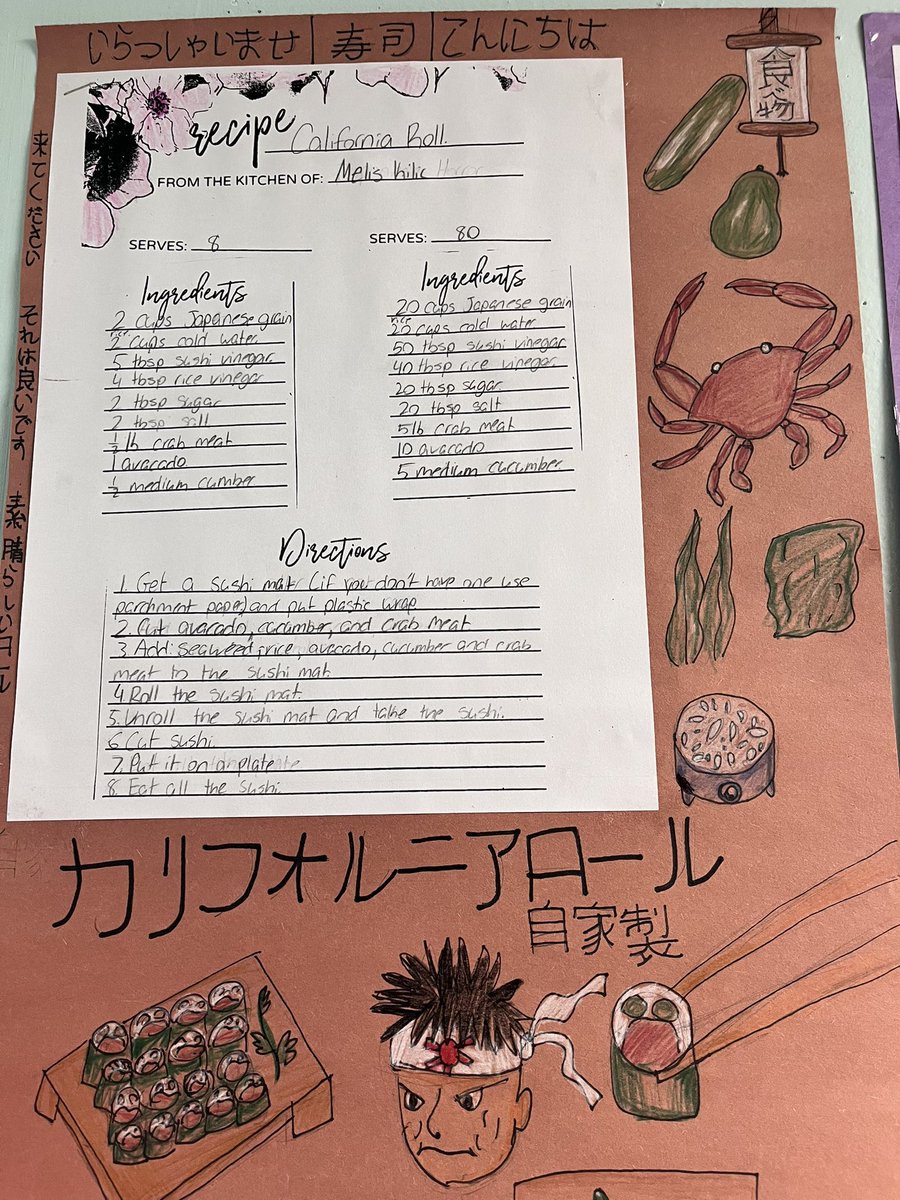 いらっしゃいませ | 寿司 | てんにちは
食べ物
来てください それは良いです 素晴らしいロール
recipe California Roll
FROM THE KITCHEN OF: Melis Kilic
SERVES: 8
Ingredients
2 cups Japanese grain
rice
2 cups cold water
5 tbsp sushi vinegar
4 tbsp rice vinegar
2 tbsp sugar
2 tbsp salt
½ lb crab meat
1 avacado
½ medium cumber
SERVES: 80
Ingredients
20 cups Japanese grain
rice
20 cups cold water
50 tbsp sushi vinegar
40 tbsp rice vinegar
20 tbsp sugar
20 tbsp salt
5 lb crab meat
10 avacado
5 medium cucumber
Directions
1. Get a sushi mat (if you don't have one use
parchment paper) and put plastic wrap
2. Cut avacado, cucumber, and crab meat
3. Add: seaweed, rice, avocado, cucumber and crab
meat to the sushi mat.
4 Roll the sushi mat.
5. Unroll the sushi mat and take the sushi.
6 Cut sushi.
7. Put it on a plate
8. Eat all the sushi.
カリフォルニアロール
自家製